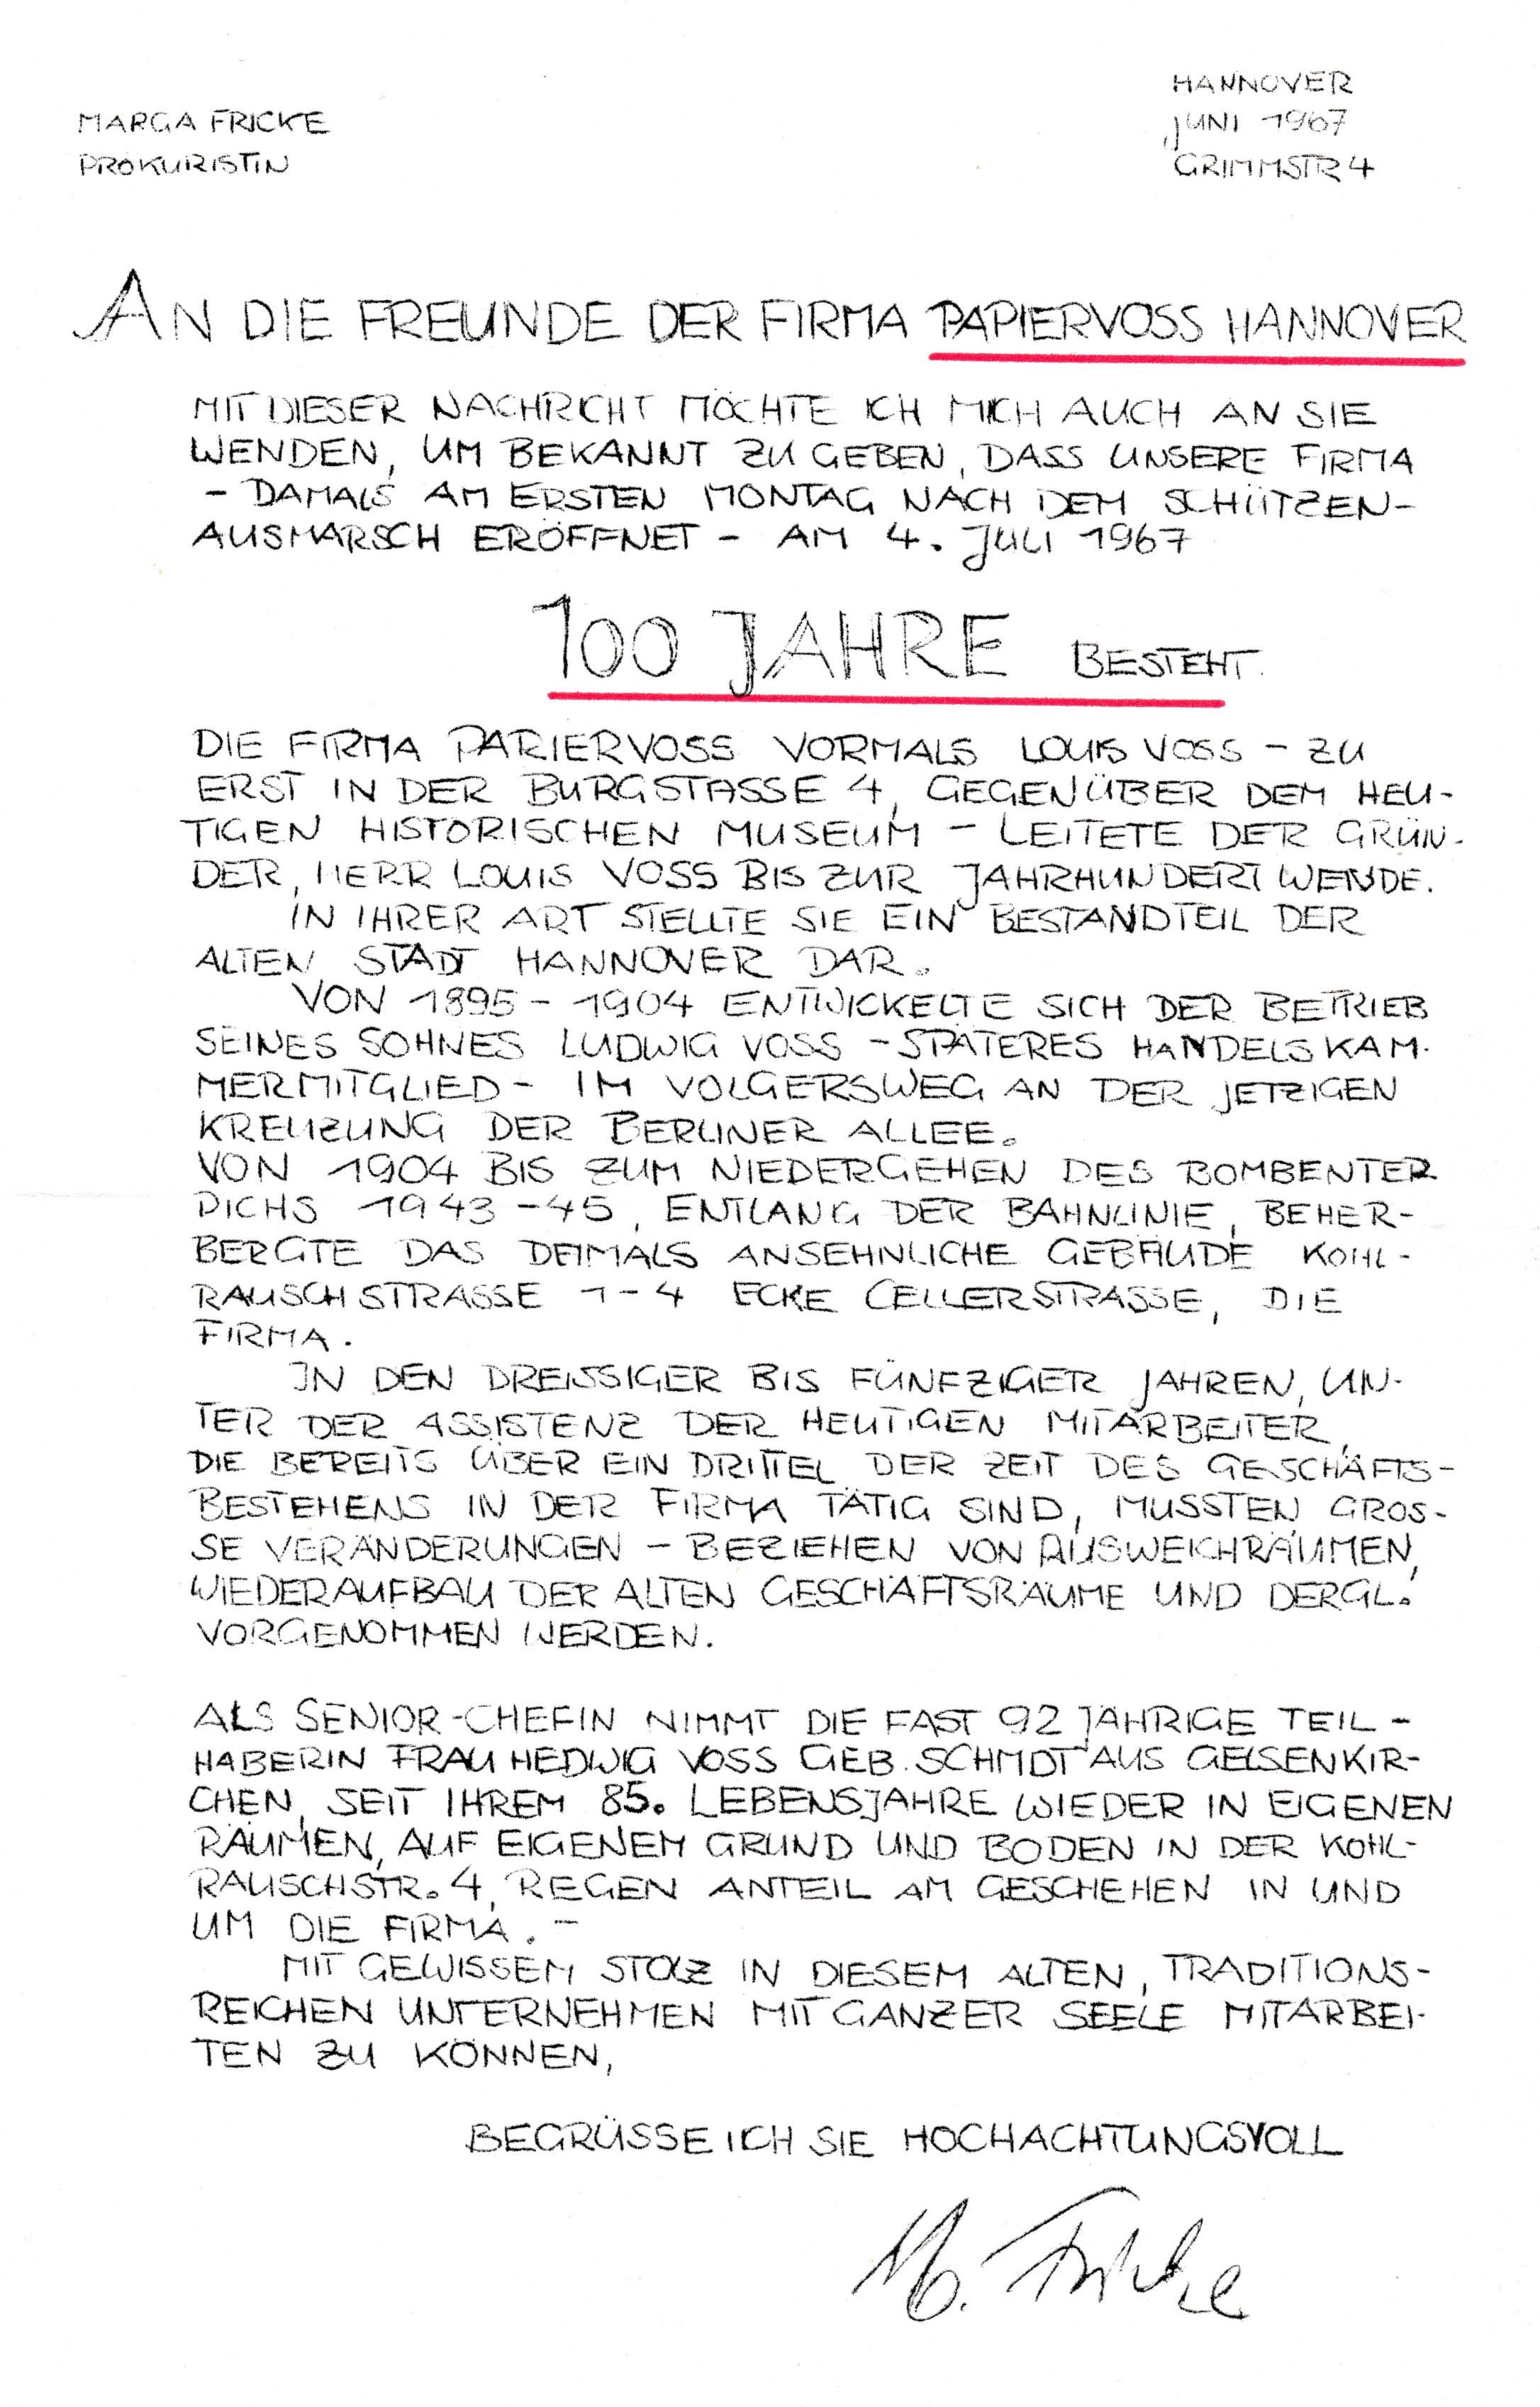 MARGA FRICKE
PROKURISTIN
HANNOVER
JUNI 1967
GRIMMSTR 4
AN DIE FREUNDE DER FIRMA PAPIERVOSS HANNOVER
MIT DIESER NACHRICHT MÖCHTE ICH MICH AUCH AN SIE
WENDEN, UM BEKANNT ZU GEBEN, DASS UNSERE FIRMA
- DAMALS AM ERSTEN MONTAG NACH DEM SCHÜTZEN-
AUSMARSCH ERÖFFNET - AM 4. JULI 1967
100 JAHRE BESTEHT.
DIE FIRMA PARIERVOSS VORMALS LOUIS VOSS - ZU
ERST IN DER BURGSTASSE 4, GEGENÜBER DEM HEU-
TIGEN HISTORISCHEN MUSEUM - LEITETE DER GRÜN-
DER, HERR LOUIS VOSS BIS ZUR JAHRHUNDERTWENDE.
IN IHRER ART STELLTE SIE EIN BESTANDTEIL DER
ALTEN STADT HANNOVER DAR.
VON 1895 - 1904 ENTWICKELTE SICH DER BETRIEB
SEINES SOHNES LUDWIG VOSS - SPÄTERES HANDELSKAM-
MERMITGLIED - IM VOLGERSWEG AN DER JETZIGEN
KREUZUNG DER BERLINER ALLEE.
VON 1904 BIS ZUM NIEDERGEHEN DES BOMBENTEP
PICHS 1943-45, ENTLANG DER BAHNLINIE, BEHER-
BERGTE DAS DAMALS ANSEHNLICHE GEBÄUDE KOHL-
RAUSCHSTRASSE 1-4 ECKE CELLERSTRASSE, DIE
FIRMA.
IN DEN DREISSIGER BIS FÜNFZIGER JAHREN, UN-
TER DER ASSISTENZ DER HEUTIGEN MITARBEITER,
DIE BEREITS ÜBER EIN DRITTEL DER ZEIT DES GESCHÄFTS-
BESTEHENS IN DER FIRMA TÄTIG SIND, MUSSTEN GROS-
SE VERÄNDERUNGEN - BEZIEHEN VON AUSWEICHRÄUMEN,
WIEDERAUFBAU DER ALTEN GESCHÄFTSRÄUME UND DERGL.
VORGENOMMEN WERDEN.
ALS SENIOR-CHEFIN NIMMT DIE FAST 92 JÄHRIGE TEIL-
HABERIN FRAU HEDWIG VOSS GEB. SCHMIDT AUS GELSENKIR-
CHEN, SEIT IHREM 85. LEBENSJAHRE WIEDER IN EIGENEN
RÄUMEN, AUF EIGENEM GRUND UND BODEN IN DER KOHL-
RAUSCHSTR. 4, REGEN ANTEIL AM GESCHEHEN IN UND
UM DIE FIRMA. -
MIT GEWISSEM STOLZ IN DIESEM ALTEN, TRADITIONS-
REICHEN UNTERNEHMEN MIT GANZER SEELE MITARBEI-
TEN ZU KÖNNEN,
BEGRÜSSE ICH SIE HOCHACHTUNGSVOLL
M. Fricke